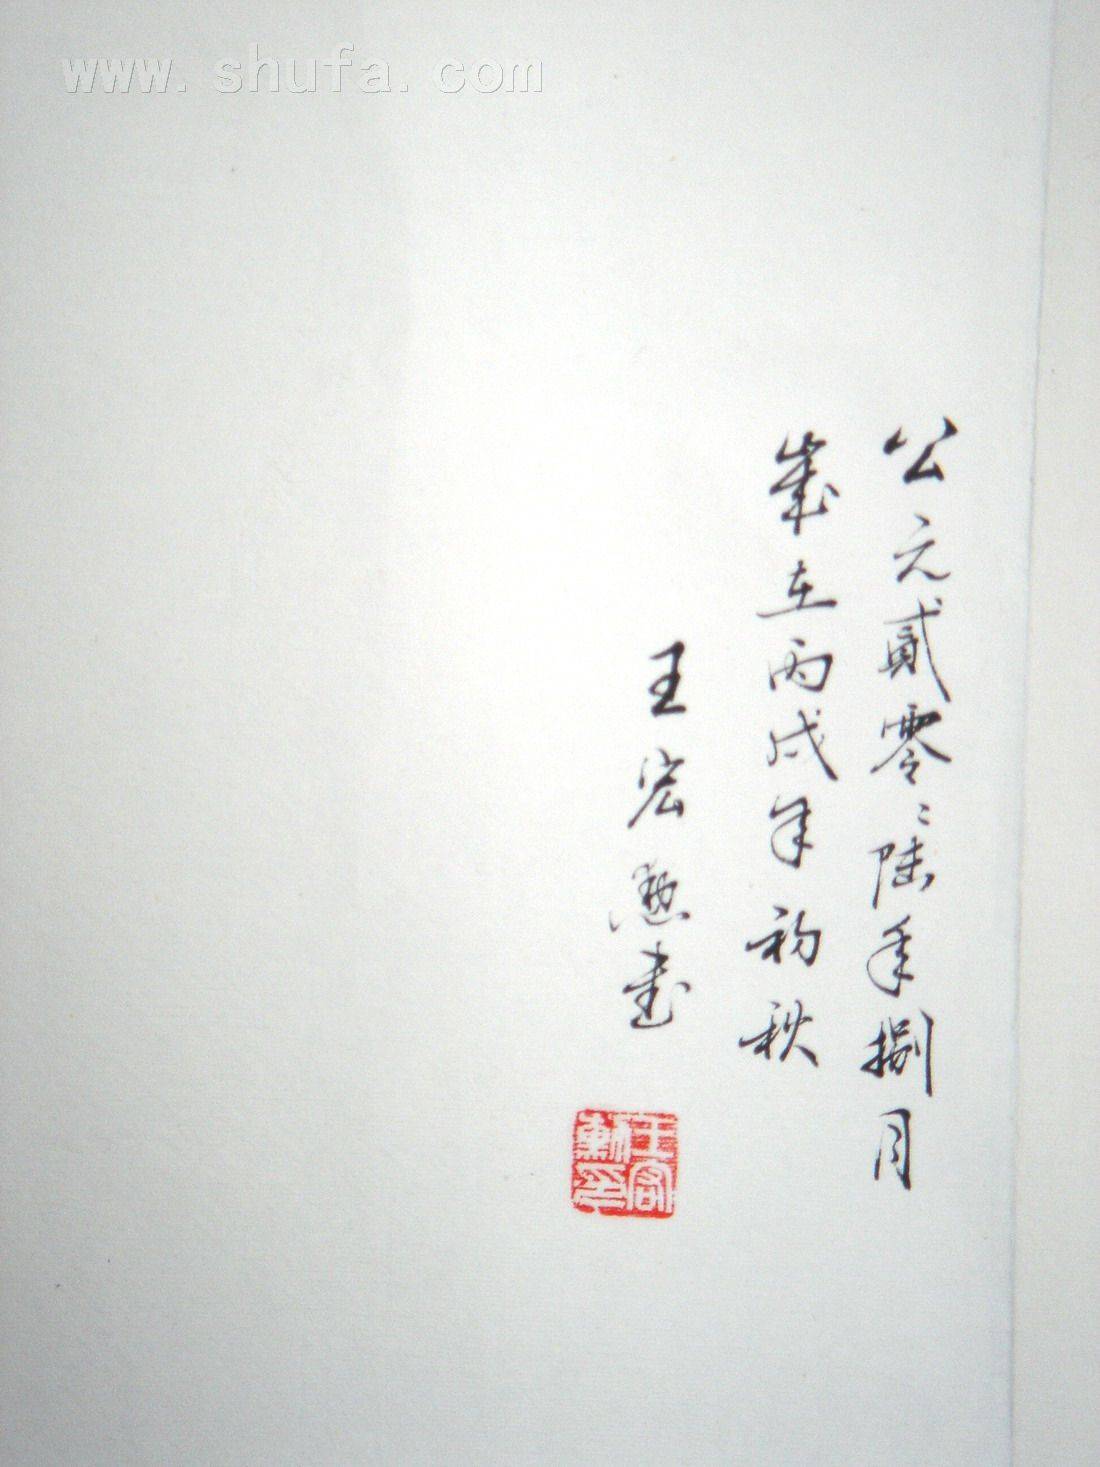 www.shufa.com
公元貳零零陸年捌月
歲在丙戌年初秋
王宏勲書
王宏勲印